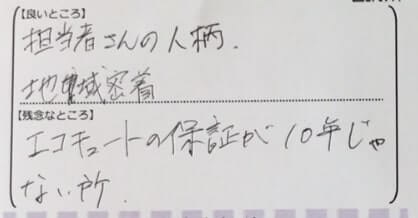 【良いところ】
担当者さんの人柄.
地域密着
【残念なところ】
エコキュートの保証が10年じゃ
ない所.